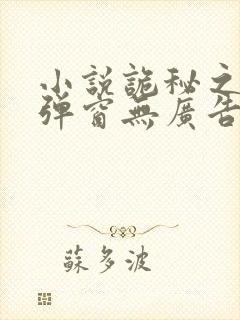 小説詭秘之
彈窗無廣告
蘇多波